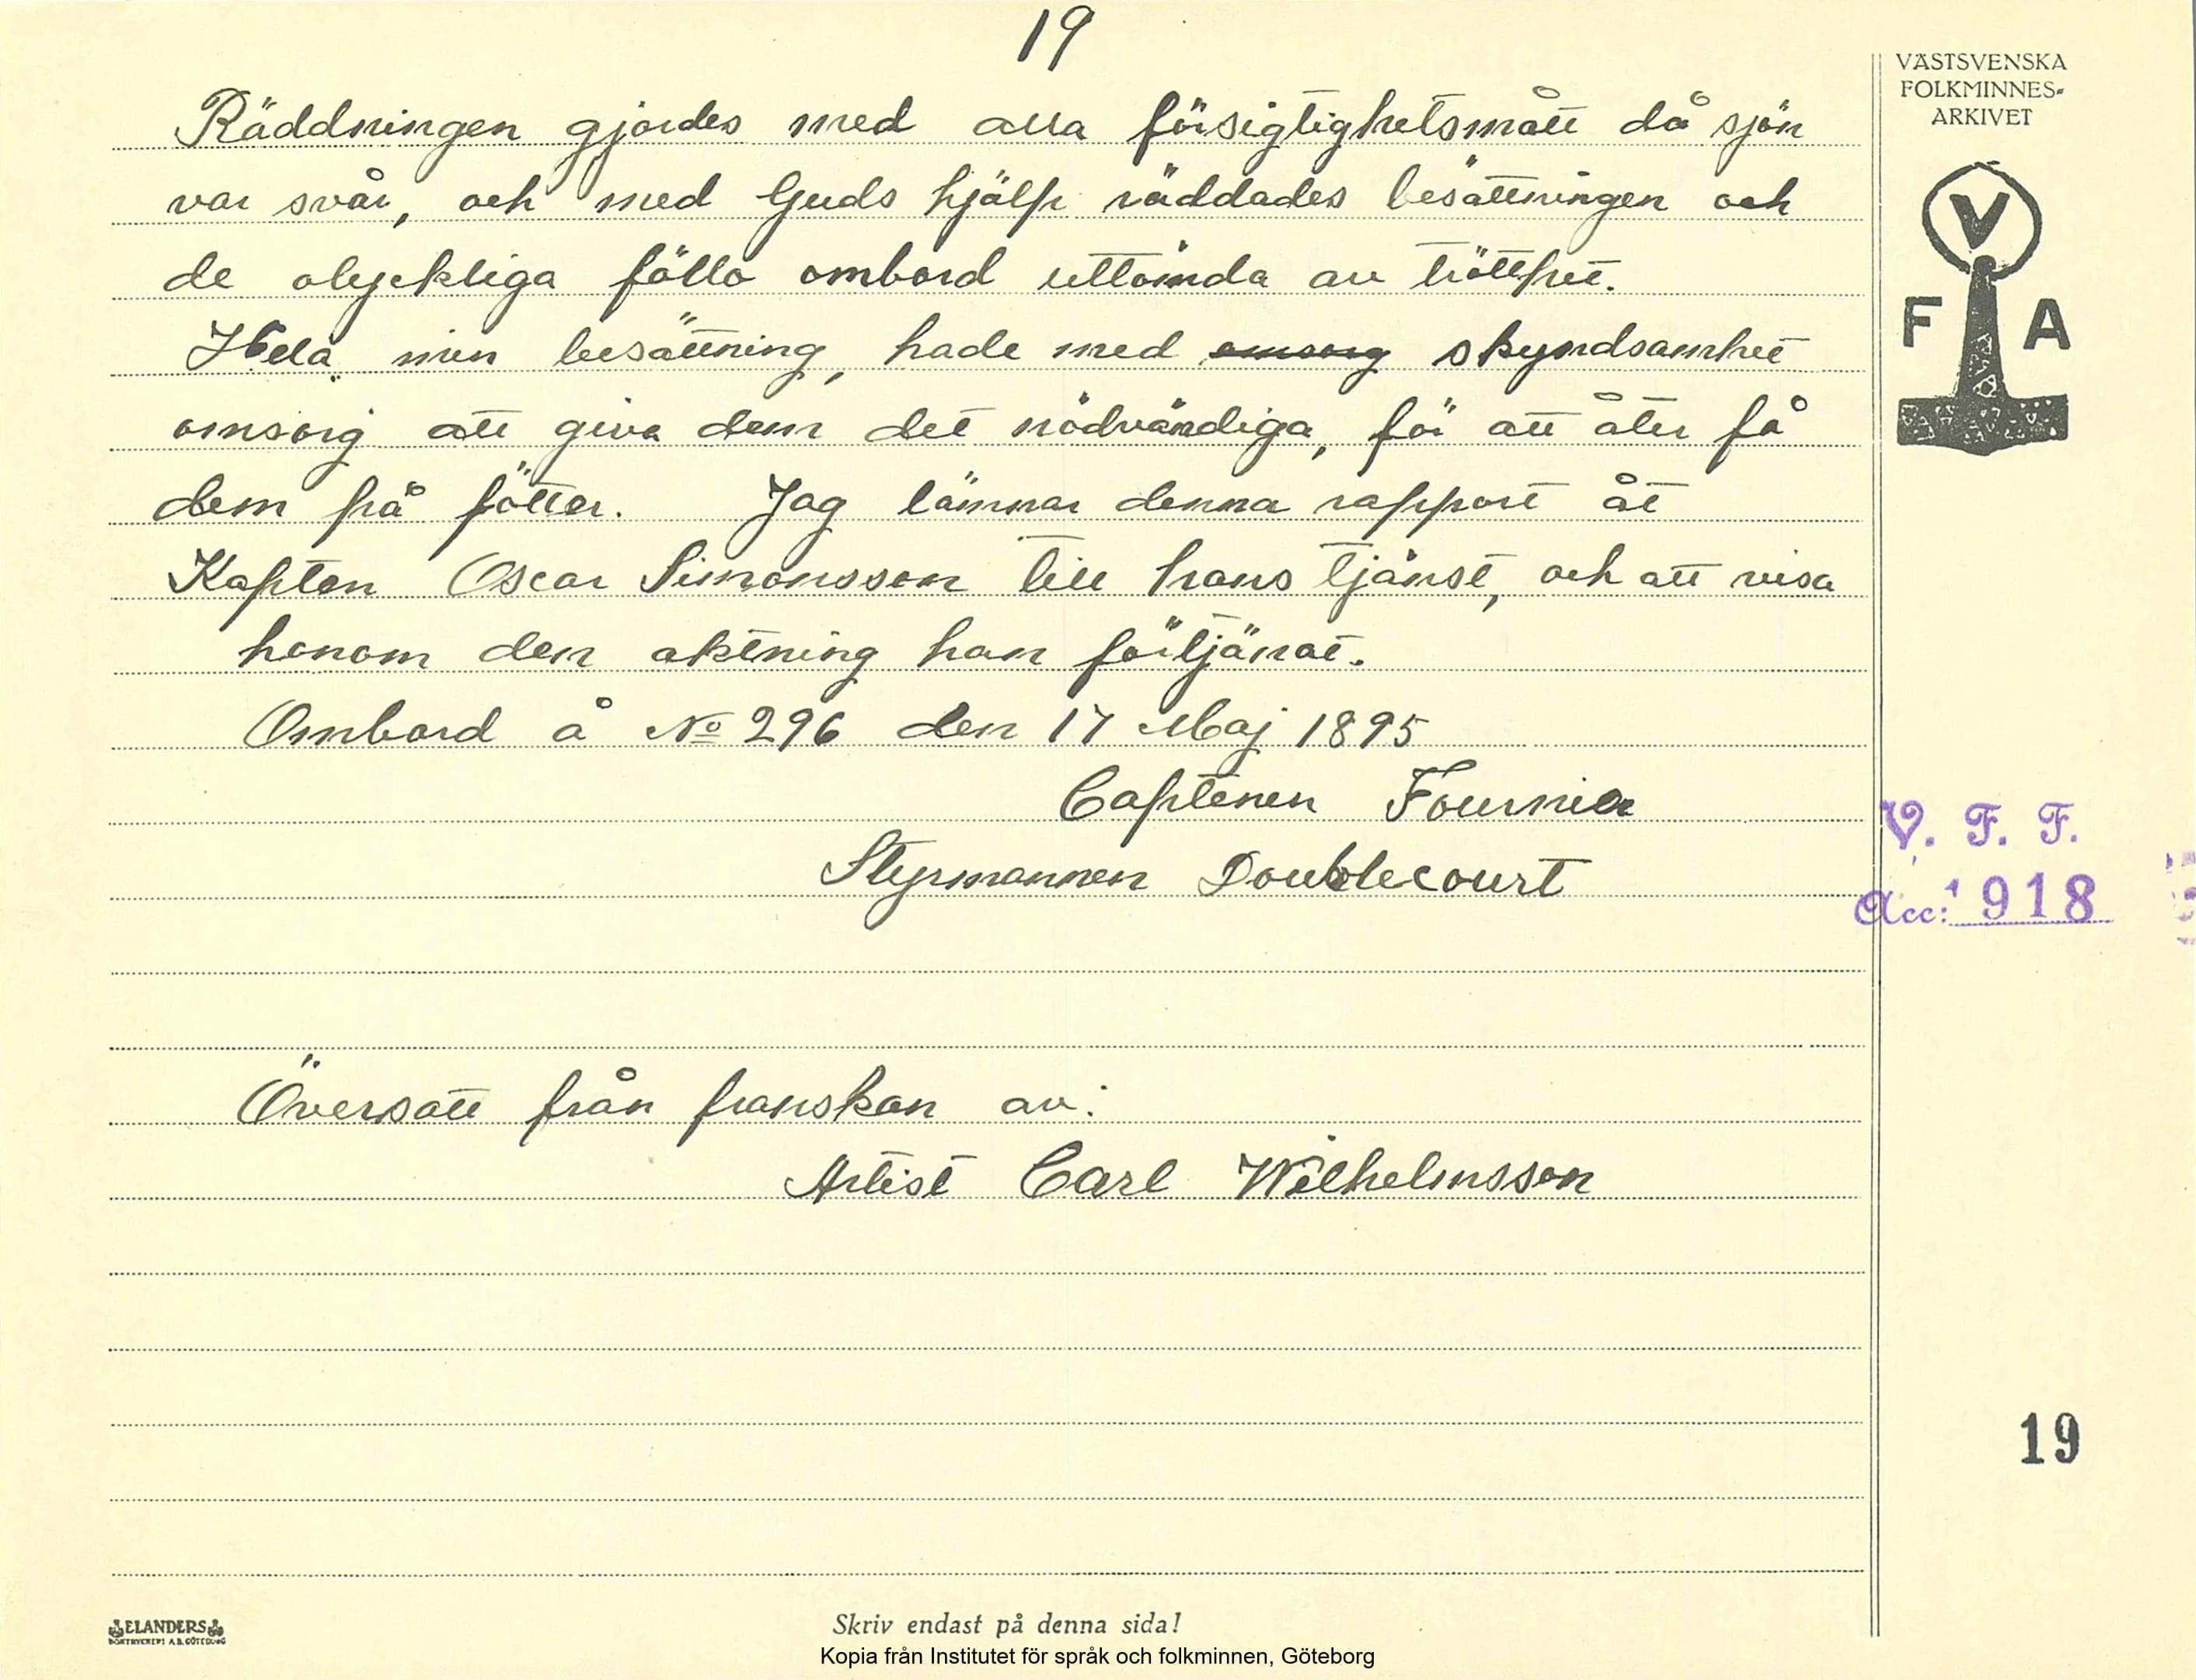 19
VÄSTSVENSKA
FOLKMINNES-
ARKIVET
Räddningen gjordes med alla försigtighetsmått då sjön
var svår, och med Guds hjälp räddades besättningen och
de olyckliga föllo ombord uttömda av trötthet.
Hela min besättning, hade med omsorg skyndsamhet
omsorg att giva dem det nödvändiga, för att åter få
dem på fötter. Jag lämnar denna rapport åt
Kapten Oscar Simonsson till hans tjänst, och att visa
honom den aktning han förtjänat.
Ombord å No 296 den 17 Maj 1895
Captenen Fournier
Styrmannen Doublecourt
Översatt från franskan av:
Artist Carl Wilhelmsson
V
F A
V. F. F.
Acc: 1918
19
ELANDERS
BOKTRYCKERI A.B. GÖTEBORG
Skriv endast på denna sida!
Kopia från Institutet för språk och folkminnen, Göteborg